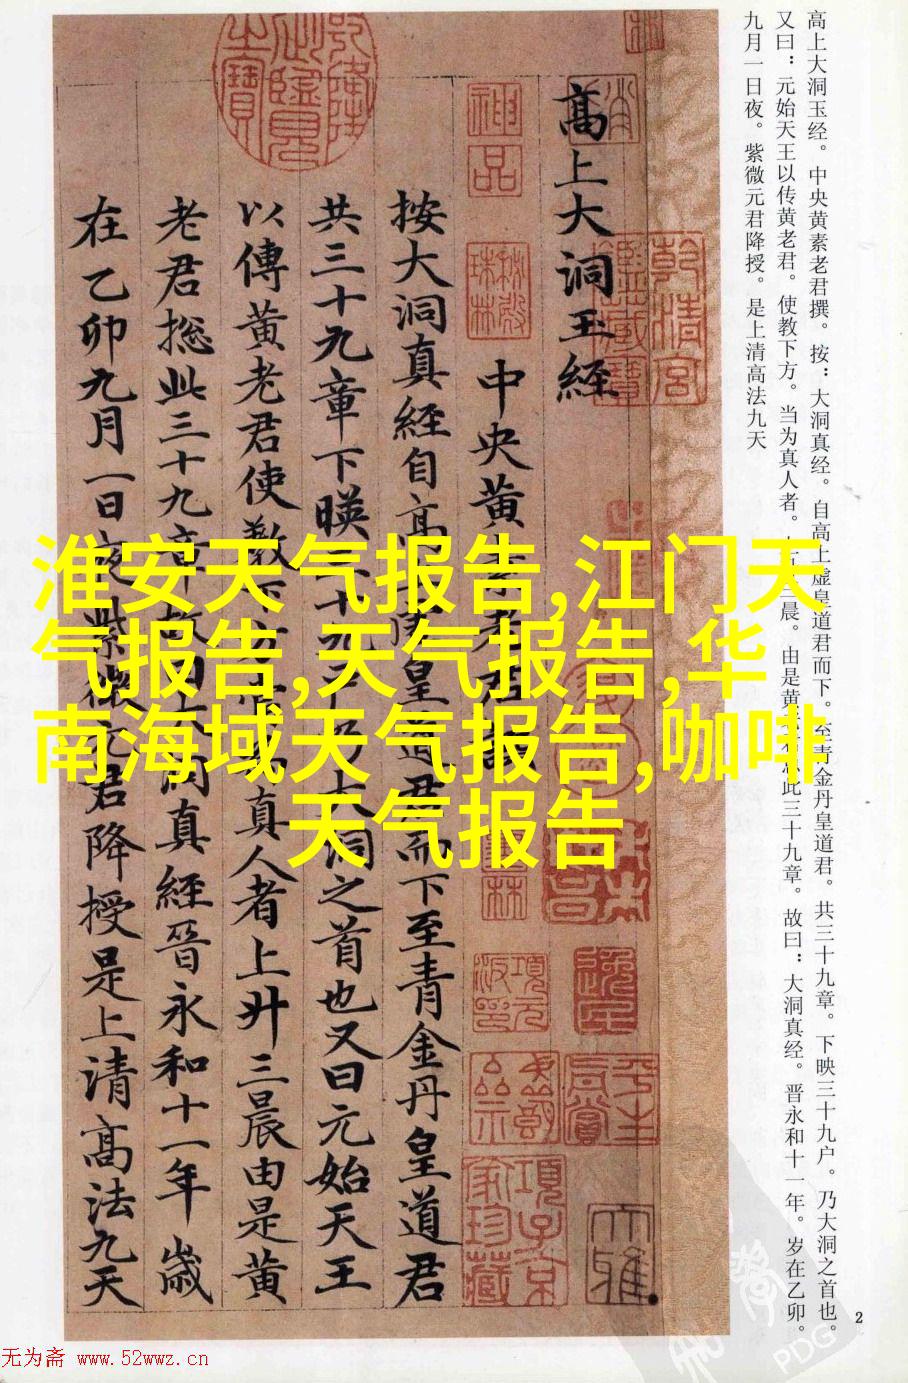 高上大洞玉经。中央黄素老君撰。按：大洞真经。自高上虚皇道君而下。至青金丹皇道君。共三十九章。下映三十九户。乃大洞之首也。
又曰：元始天王以传黄老君。使教下方。当为真人者。三晨。由是黄此三十九章。故曰：大洞真经。晋永和十一年。岁在乙卯。
九月一日夜。紫微元君降授。是上清高法九天
2
高上大洞玉經
中央黄素老君
按大洞真經自高上虚皇道君而下至青金丹皇道君
共三十九章下暎三十九户乃大洞之首也又曰元始天王
以傳黄老君使教下方當為真人者上升三晨由是黄
老君捴此三十九章故曰大洞真經晉永和十一年歲
在乙卯九月一日夜紫微元君降授是上清髙法九天
乾隆御覽之寶
乾清宮鑑藏寶
神品
項元汴印
平生真賞
項子京家珍藏
大雅
淮安天气报告,江门天
气报告,天气报告,华
南海域天气报告,咖啡
天气报告
PDG
无为斋 www.52wwz.cn